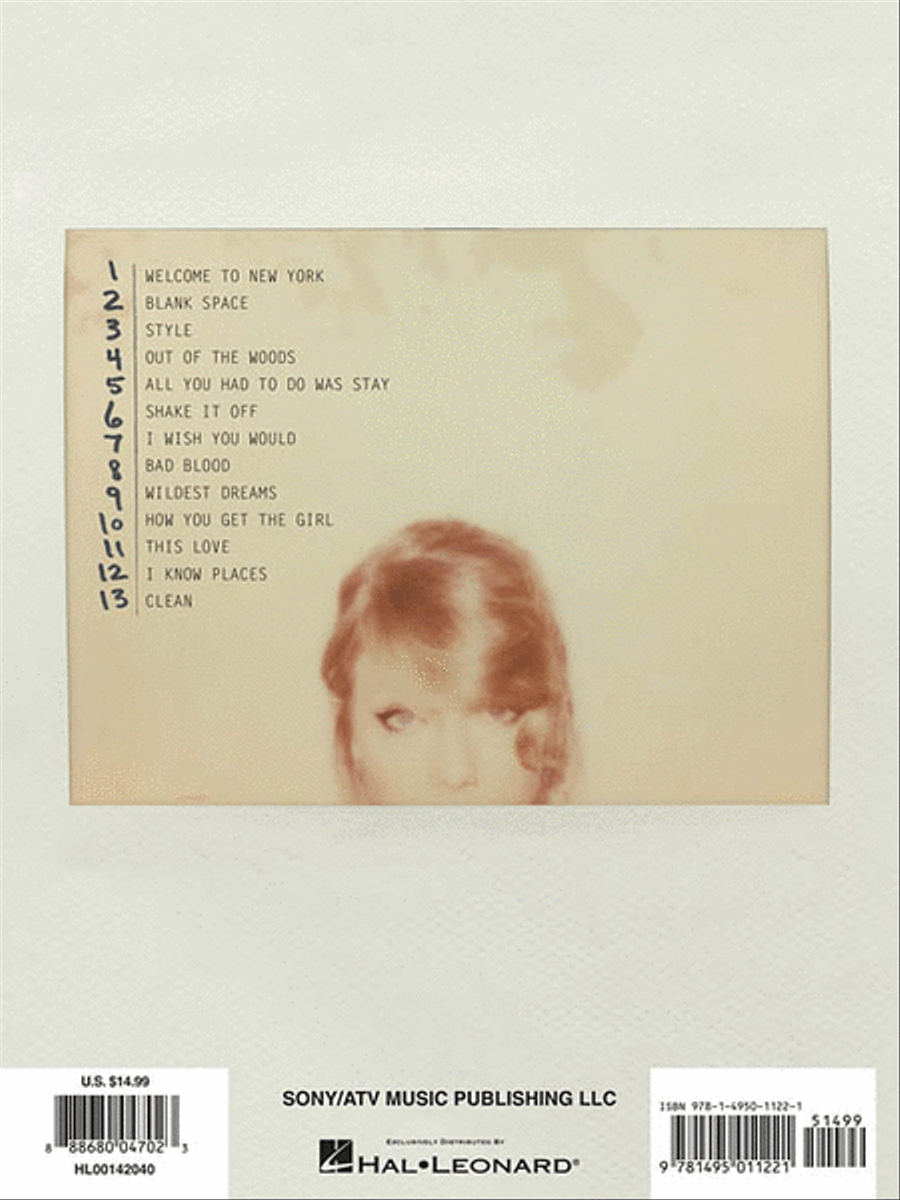 1 WELCOME TO NEW YORK
2 BLANK SPACE
3 STYLE
4 OUT OF THE WOODS
5 ALL YOU HAD TO DO WAS STAY
6 SHAKE IT OFF
7 I WISH YOU WOULD
8 BAD BLOOD
9 WILDEST DREAMS
10 HOW YOU GET THE GIRL
11 THIS LOVE
12 I KNOW PLACES
13 CLEAN
U.S. $14.99
8 88680 04702 3
HL00142040
SONY/ATV MUSIC PUBLISHING LLC
EXCLUSIVELY DISTRIBUTED BY
HAL•LEONARD®
ISBN 978-1-4950-1122-1
51499
9 781495 011221